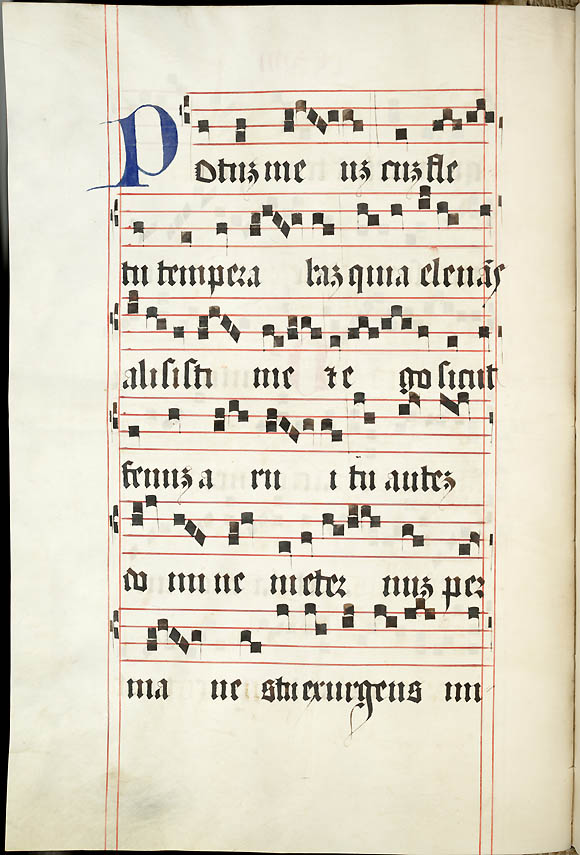 Potuz me uz cuz fle
tu tempera baz quia eleuās
alisisti me ⁊ e go sicut
fenuz a ru i tu autez
do mi ne in eter nuz per
ma ne s tu exurgens mi